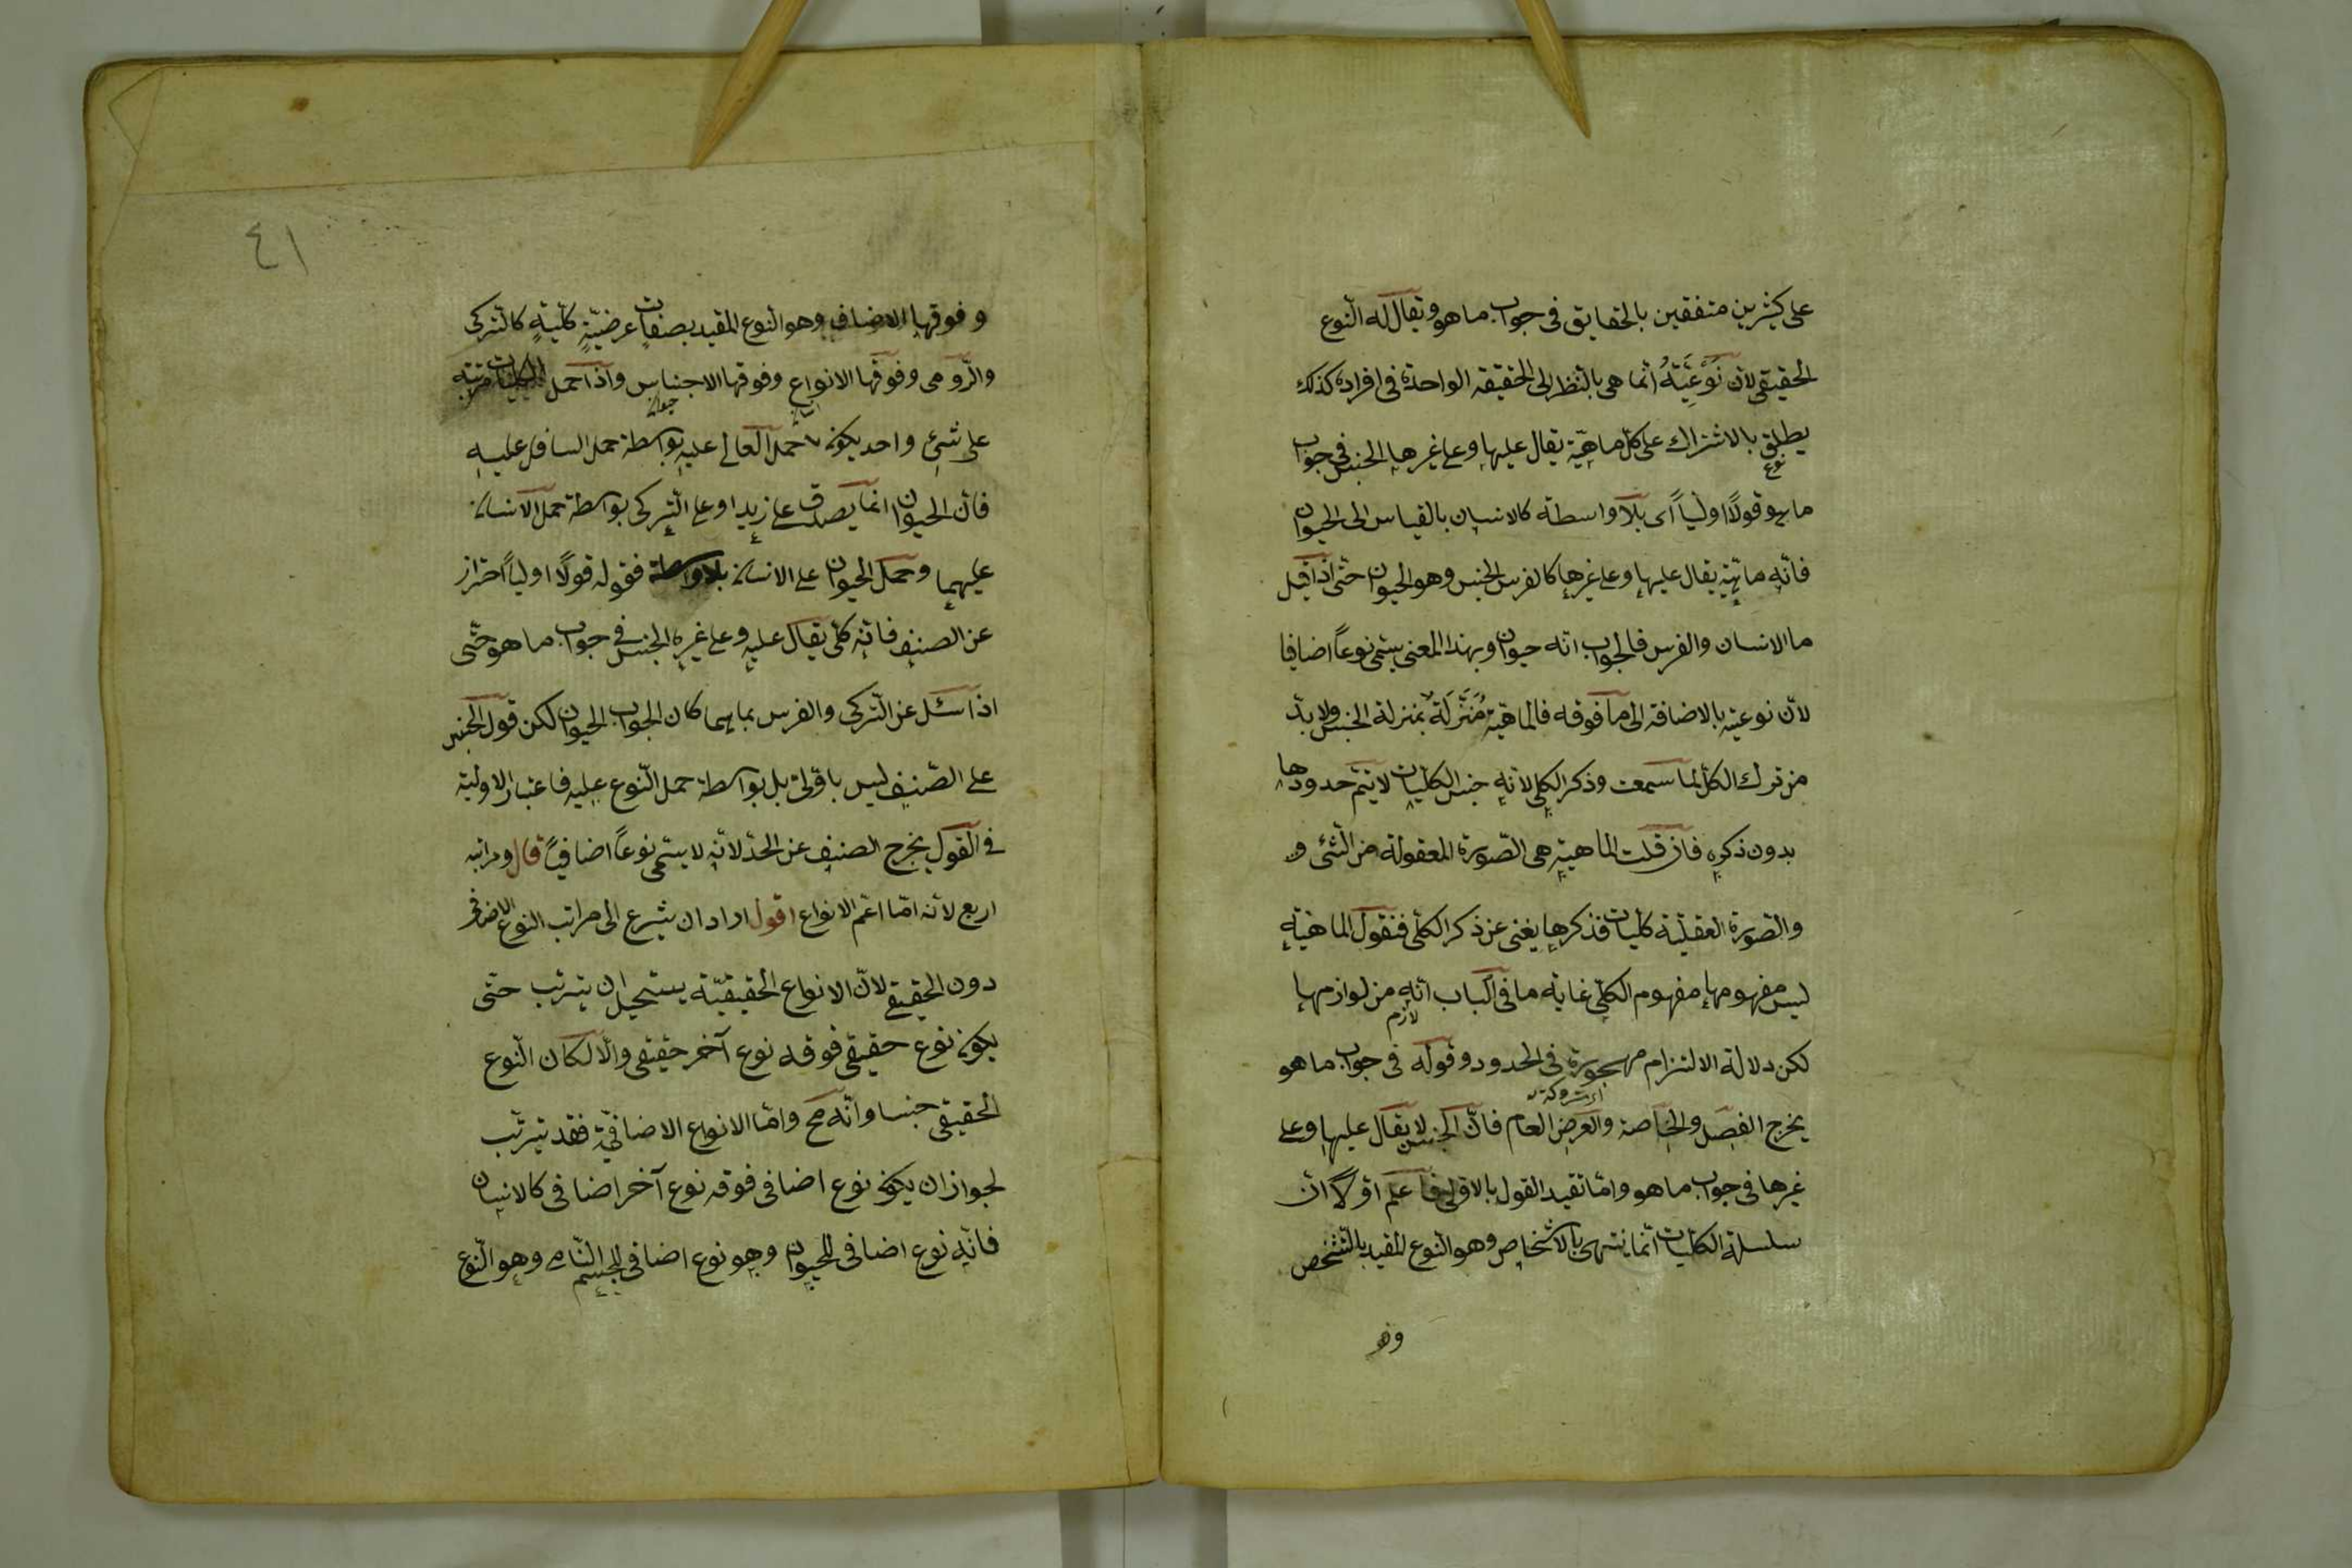 على كثيرين متفقين بالحقايق فى جواب ما هو ويقال له النّوع
الحقيقى لان نَوْعِيَّتَهُ انّما هى بالنّظر الى الحقيقه الواحدة فى افراده كذلك
يطلق بالاشتراك على كلّ ماهيّة يقال عليها وعلى غيرها الجنس فى جواب
نوع
ما هو قولاً اوليّاً اى بلا واسطة كالانسان بالقياس الى الحيوان
فانّه ماهيّة يقال عليها وعلى غيرها كالفرس الجنس وهو الحيوان حتّى اذا قيل
ما الانسان والفرس فالجواب انّه حيوان وبهذا المعنى يسمّى نوعاً اضافيا
لانّ نوعيّته بالاضافة الى ما فوقه فالماهيّة مُنَزَّلَةٌ بمنزلة الجنس ولا بدّ
من ترك الكلّ لما سمعت وذكر الكلى لانّه جنس الكلّيّات لا يتمّ حدودها
بدون ذكره فان قلت الماهيّة هى الصّورة المعقولة من الشّئ و
والصّورة العقليّة كليّات فذكرها يغنى عن ذكر الكلّى فنقول الماهيّة
ليس مفهومها مفهوم الكلّى غاية ما فى الباب انّه من لوازمها
لازم
لكن دلالة الالتزام مهجورة فى الحدود وقوله فى جواب ما هو
اى متروكة
يخرج الفصل والخاصة والعرض العام فانّ الجنس لا يقال عليها وعلى
غيرها فى جواب ما هو وامّا تقيد القول بالاوّلى فاعلم اوّلاً انّ
سلسلة الكلّيات انّما ينتهى بالاشخاص وهو النّوع المقيد بالتّشخص
وفو
٤١
وفوقها الاصناف وهو النّوع المقيد بصفات عرضيّةٍ كلّيّةٍ كالتّركى
والرّومى وفوقها الانواع وفوقها الاجناس واذا حمل الكليات مترتبه
على شئ واحد يكون حمل العالى عليه بواسطة حمل السافل عليه
فان الحيوان انما يصدق على زيد او على التّركى بواسطة حمل الانسان
عليهما وحمل الحيوان على الانسان بلا واسطة فقوله قولاً اولياً احتراز
عن الصنف فانّه كلّى يقال عليه وعلى غيره الجنس فى جواب ما هو حتّى
اذا سئل عن التّركى والفرس بما هما كان الجواب الحيوان لكن قول الجنس
على الصّنف ليس باوّلىّ بل بواسطة حمل النّوع عليه فاعتبار الاوليّة
فى القول يخرج الصنف عن الحدّ لانّه لا يسمّى نوعاً اضافيّاً قال ومراتبه
اربع لانّه امّا اعّم الانواع اقول اراد ان يشرع الى مراتب النوع الاضافى
دون الحقيقى لانّ الانواع الحقيقيّة يستحيل ان يترتب حتى
يكون نوع حقيقى فوقه نوع آخر حقيقى والّا لكان النّوع
الحقيقى جنسا وانّه مح وامّا الانواع الاضافيّة فقد يترتّب
لجواز ان يكون نوع اضافى فوقه نوع آخر اضافى كالانسان
فانّه نوع اضافى للحيوان وهو نوع اضافى للجسم النّامى وهو النّوع